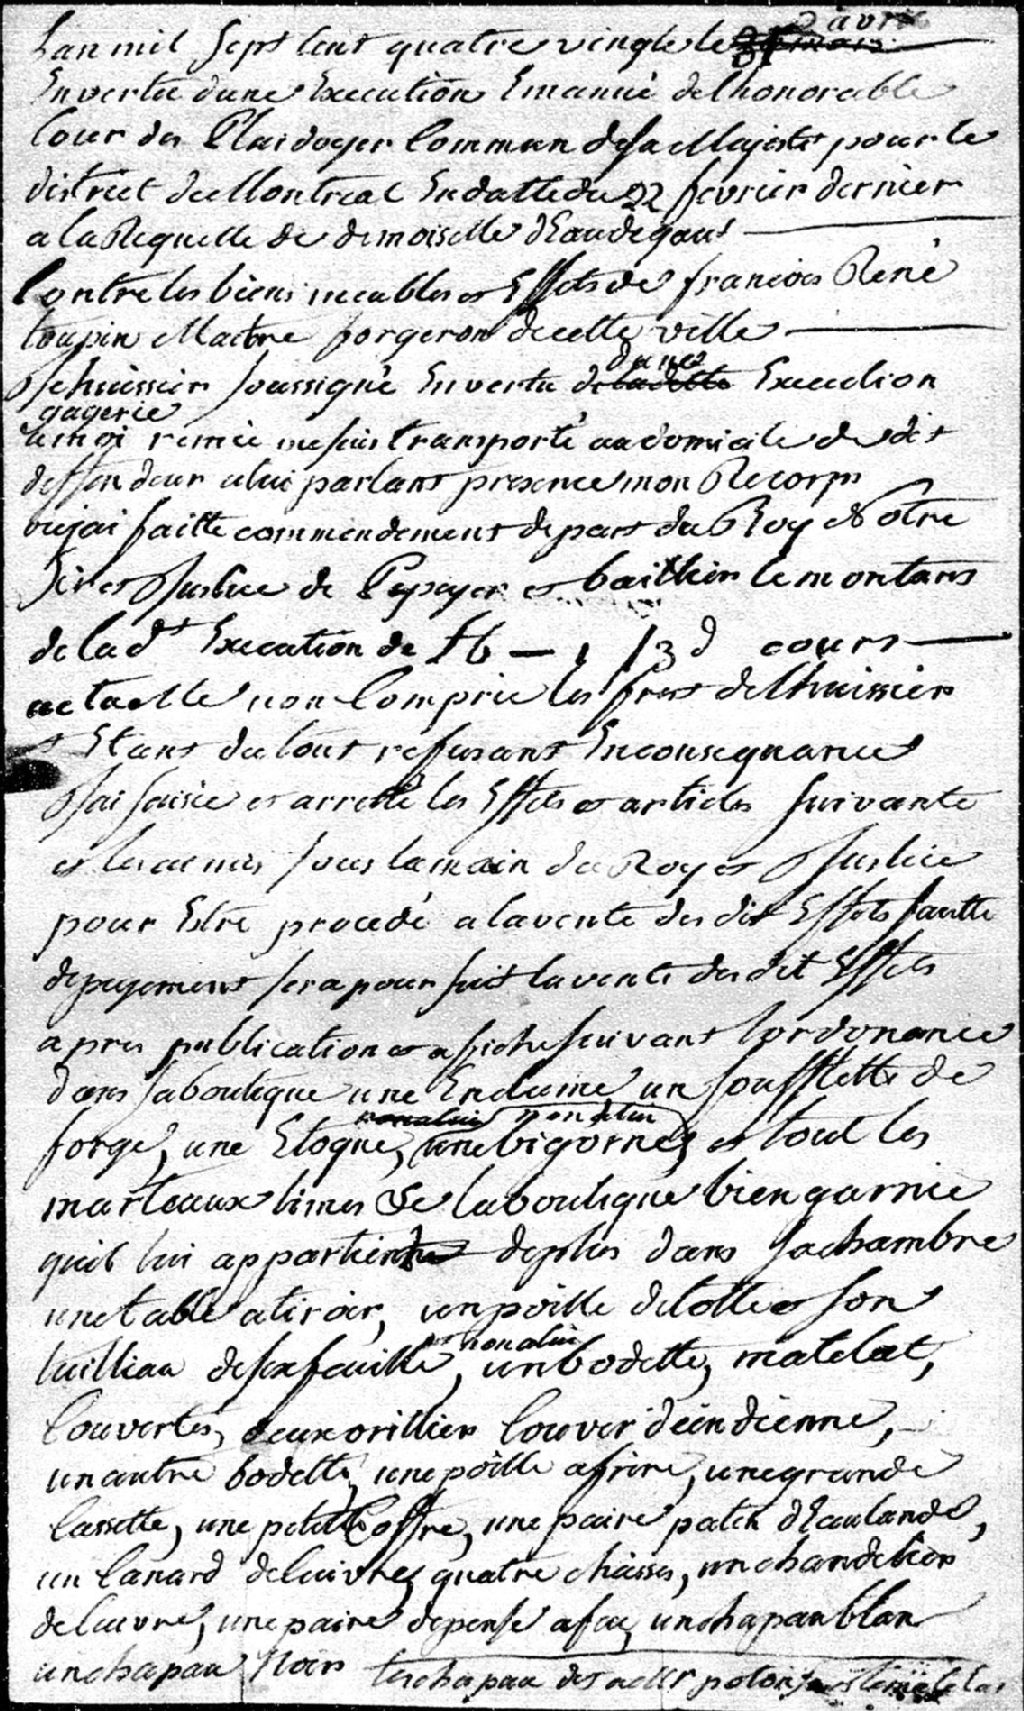 Lan mil Sept Cent quatre vingt le 2 avril
En vertu dune Execution Emannée delhonorable
Cour des Plaidoyer Commun desa Majesté pour le
district de Montreal En datte du 22 fevrier dernier
a la Requette de demoiselle
Contre les biens meubles et Effets de francois René
toupin Maitre forgeron de cette ville
Je huissier soussigné En vertu dune Execution
gagerie
a moi remie me suis transporté au domicile du dit
deffendeur a lui parlant presence mon Recorps
ou jai faitte commendement de part du Roy Notre
Sire et Justice de Pepayer et baillier le montant
de la dt Execution de 16 — 1 /3d cours
actuelle non Comprie les frest delhuissier
Etant du tout reffusant En consequance
Jai saisie et arretté les Effets et articles suivante
et les ai mis sous la main du Roy et Justice
pour Estre procedé a la vente des dit Effets fautte
depayement sera poursuit la vente des dit Effets
apres publication et afiche suivant lordonance
dans sa boutique une Enclume un soufflette de
non alui non alui
forge, une Etoque, (une bigorne) et tout les
marteaux limes &c la boutique bien garnie
quil lui appartient deplus dans sa chambre
une table a tiroir, un poille de tolle et son
non alui
tuilliau de six feuille, un bodette, matelat,
Couvertes, deux orillier Couver dein dienne,
un autre bodette, une poille a frire, une grande
Cassette, une petitte Coffre, une paire patin dEaulande,
un Canard de Cuivre, quatre chaises, un chandelier
de Cuivre, une paire depense a feu, un chapau blan
un chapau Noir les chapau des